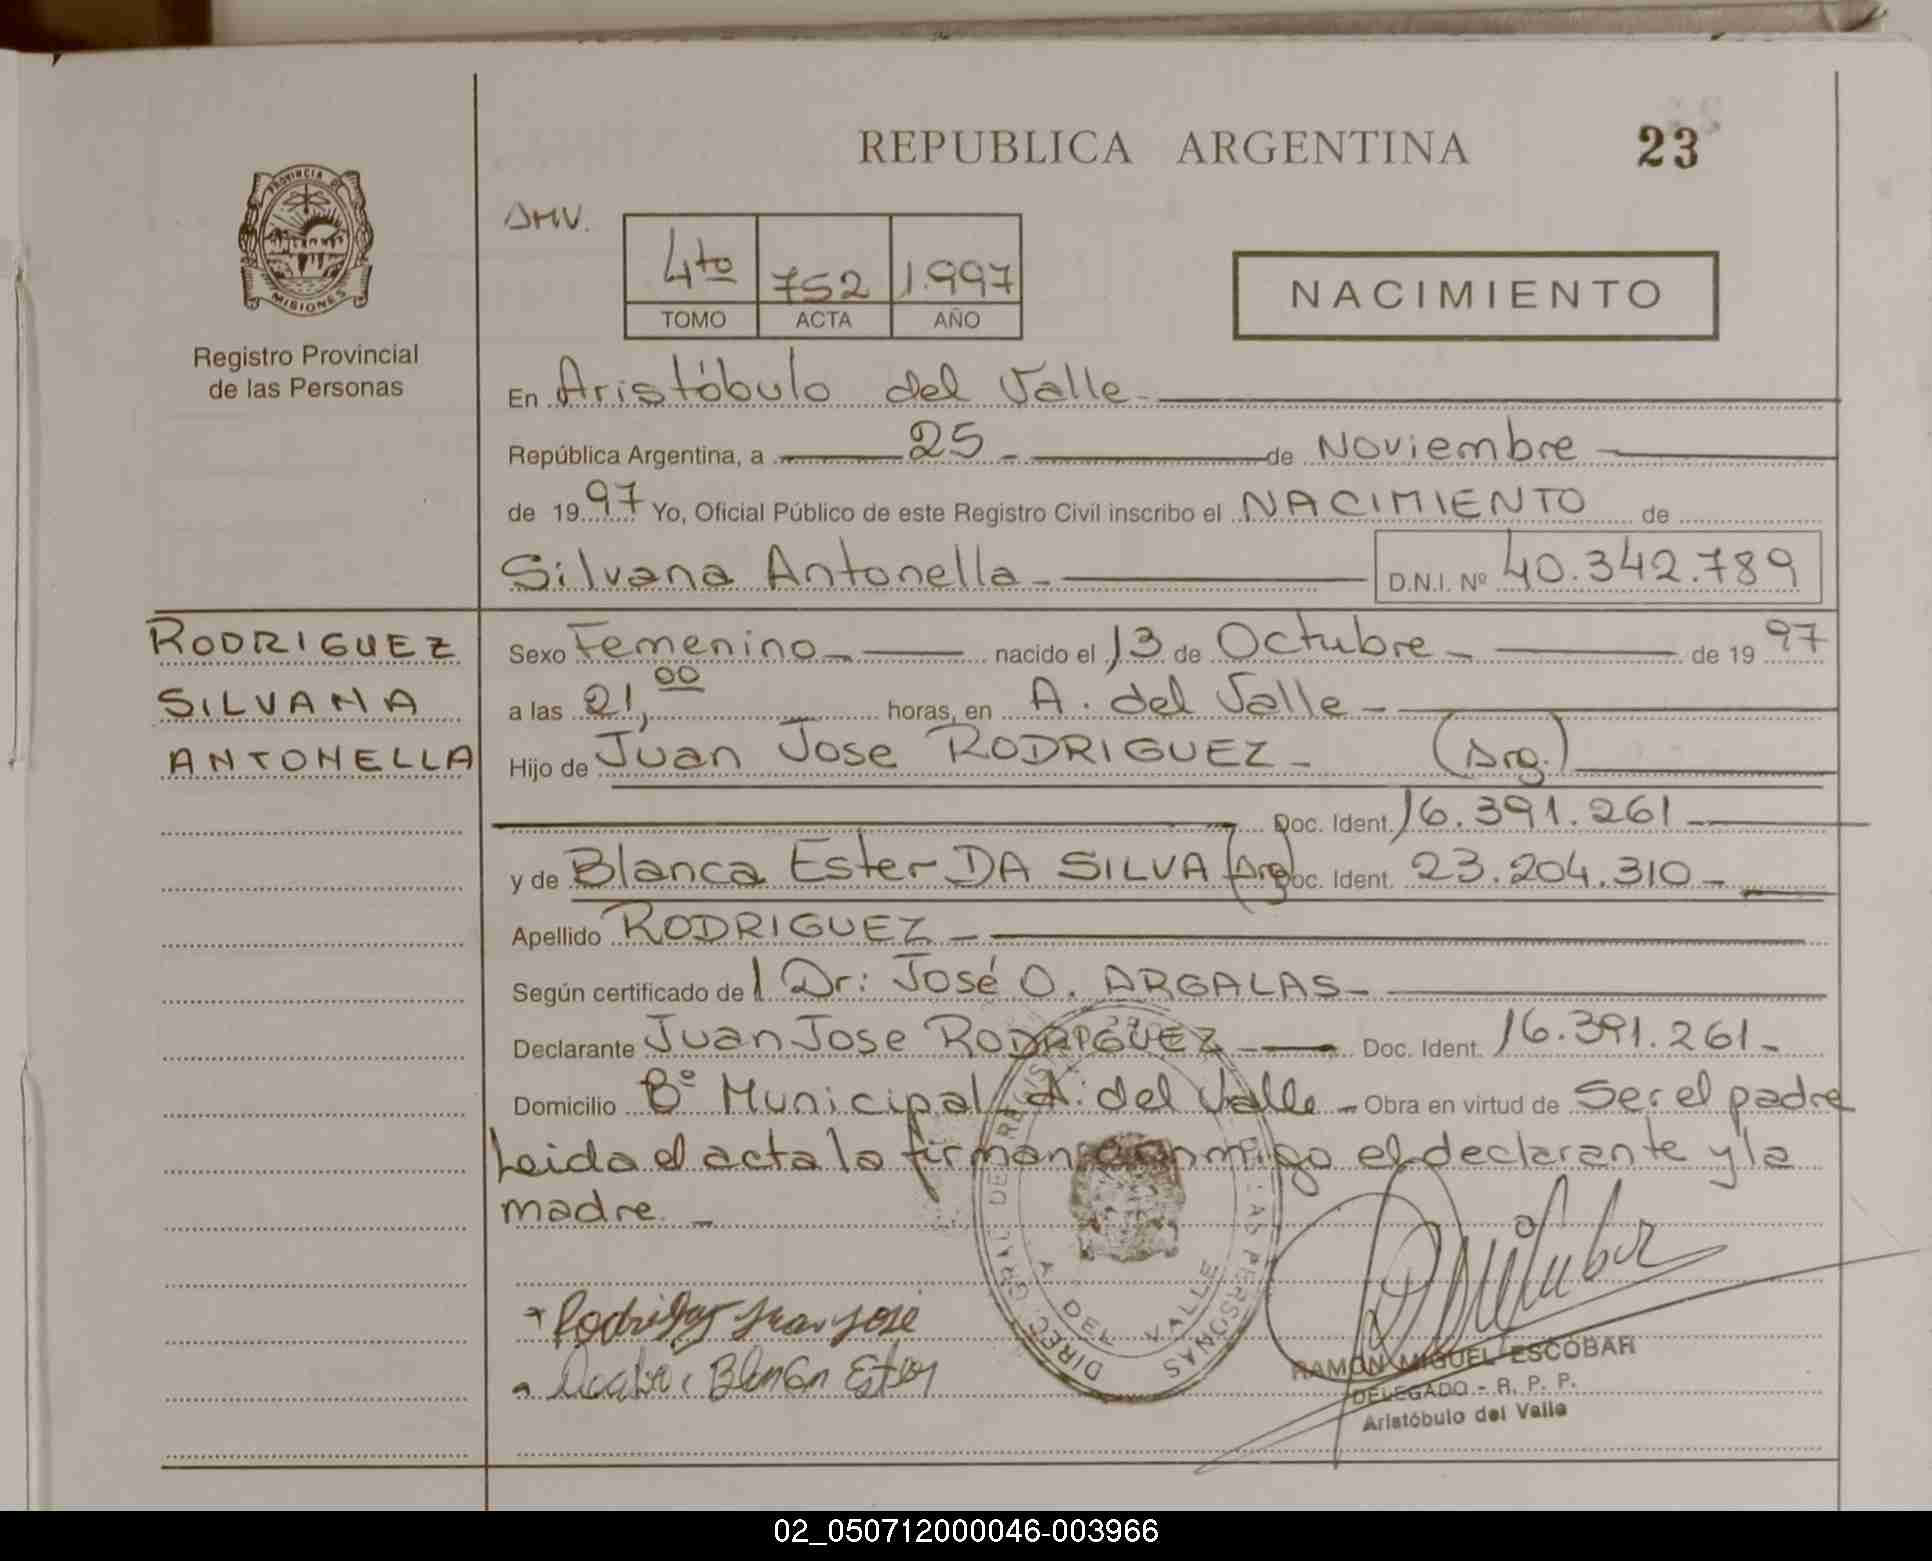 REPUBLICA ARGENTINA
23
PROVINCIA DE
MISIONES
Registro Provincial
de las Personas
4to 752 1.997
TOMO ACTA AÑO
NACIMIENTO
En Aristóbulo del Valle
República Argentina, a 25 de Noviembre
de 1997 Yo, Oficial Público de este Registro Civil inscribo el NACIMIENTO de
Silvana Antonella D.N.I. Nº 40.342.789
RODRIGUEZ
SILVANA
ANTONELLA
Sexo Femenino nacido el 13 de Octubre de 1997
a las 21,00 horas, en A. del Valle
Hijo de Juan Jose RODRIGUEZ (Arg.)
Doc. Ident. 16.391.261
y de Blanca Ester DA SILVA (Arg) Doc. Ident. 23.204.310
Apellido RODRIGUEZ
Según certificado del Dr: José O. ARGALAS
Declarante Juan Jose RODRIGUEZ Doc. Ident. 16.391.261
Domicilio Bº Municipal A. del Valle Obra en virtud de Ser el padre
Leida el acta la firman conmigo el declarante y la
madre.
A DEL VALLE
Rodriguez Juan José
RAMON MIGUEL ESCOBAR
DELEGADO - R. P. P.
Aristóbulo del Valle
02_050712000046-003966